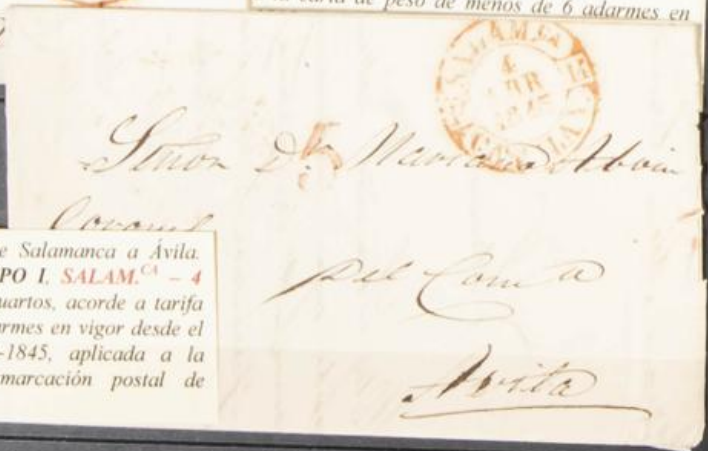 una carta de peso de menos de 6 adarmes en
SALAM.CA
4
ABR
1845
Señor Dn Mariano Aboin
Coronel
del Com
Avila
e Salamanca a Ávila.
PO I. SALAM.CA – 4
uartos, acorde a tarifa
armes en vigor desde el
-1845, aplicada a la
marcación postal de